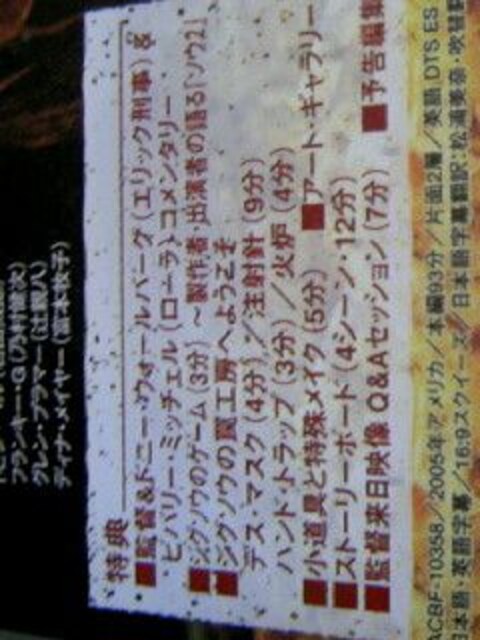 フランキー・G(乃村健次)
グレン・プラマー(辻親八)
ディナ・メイヤー(宮本牧子)
特典
■監督&ドニー・ウォールバーグ(エリック刑事)&
ビバリー・ミッチェル(ローラ)コメンタリー
■ジグソウのゲーム(3分)～製作者・出演者の語る「ソウ2」
■ジグソウの罠工房へようこそ
デス・マスク(4分)/注射針(9分)
ハンド・トラップ(3分)/火炉(4分)
■小道具と特殊メイク(5分) ■アート・ギャラリー
■ストーリーボード(4シーン・12分)
■監督来日映像 Q&Aセッション(7分) ■予告編集
CBF-10358/2005年アメリカ/本編93分/片面2層/英語DTS ES
日本語・英語字幕/16:9スクイーズ/日本語字幕翻訳:松浦美奈・吹替